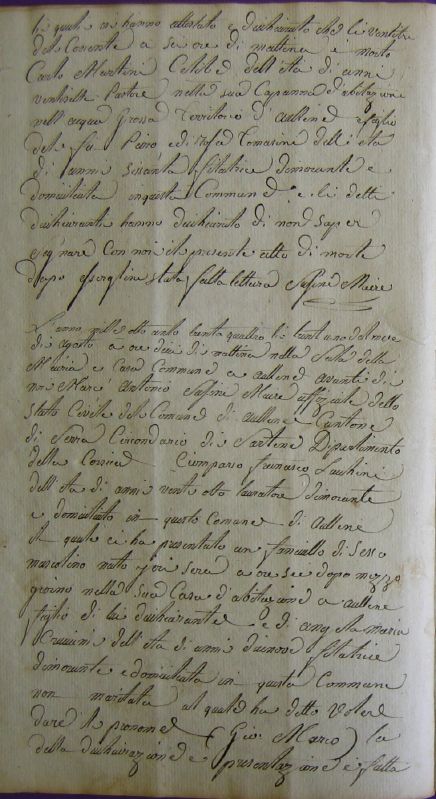 li quali ci hanno attestato e dichiarato che li ventitre
del Corrente a sei ore di mattina è morto
Carlo Martini Celibe dell'età di anni
ventisette Pastore nella sua Capanna d'abitazione
nell'acqua Grossa Territorio d'aullene e figlio
del fu Pietro e di Rosa Tomasini dell'età
di anni sissanta filatrice dimorante e
domiciliata in questa Commune e li detti
dichiaranti hanno dichiarato di non saper
segnare con noi il presente atto di morte
dopo essergline stata fatta lettura Safini Maire
L'anno mille otto cento trenta quattro li trent uno del mese
di Agosto a ore dieci di mattina nella Sala della
Mairia e Casa Commune a aullene avanti di
noi Marc' Antonio Safini Maire uffiziale dello
stato Civile del Comune di aullene Cantone
di Serra Circondario di Sartene Dipartimento
della Corsica Francesco
dell'età di anni vent otto lavoratore dimorante
e domiciliato in questo Comune di Aullene
Il quale ci ha presentato un fanciullo di sesso
mascolino nato jeri sera a ore sei dopo mezzo
giorno nella sua Casa d'abitazione a aullene
figlio di lui dichiarante e di Maria
dell'età di anni filatrice
dimorante e domiciliata in questa Commune
non maritata al quale ha detto volere
dare il pronome (Gio. Marco) la
detta dichiarazione e presentazione è fatta